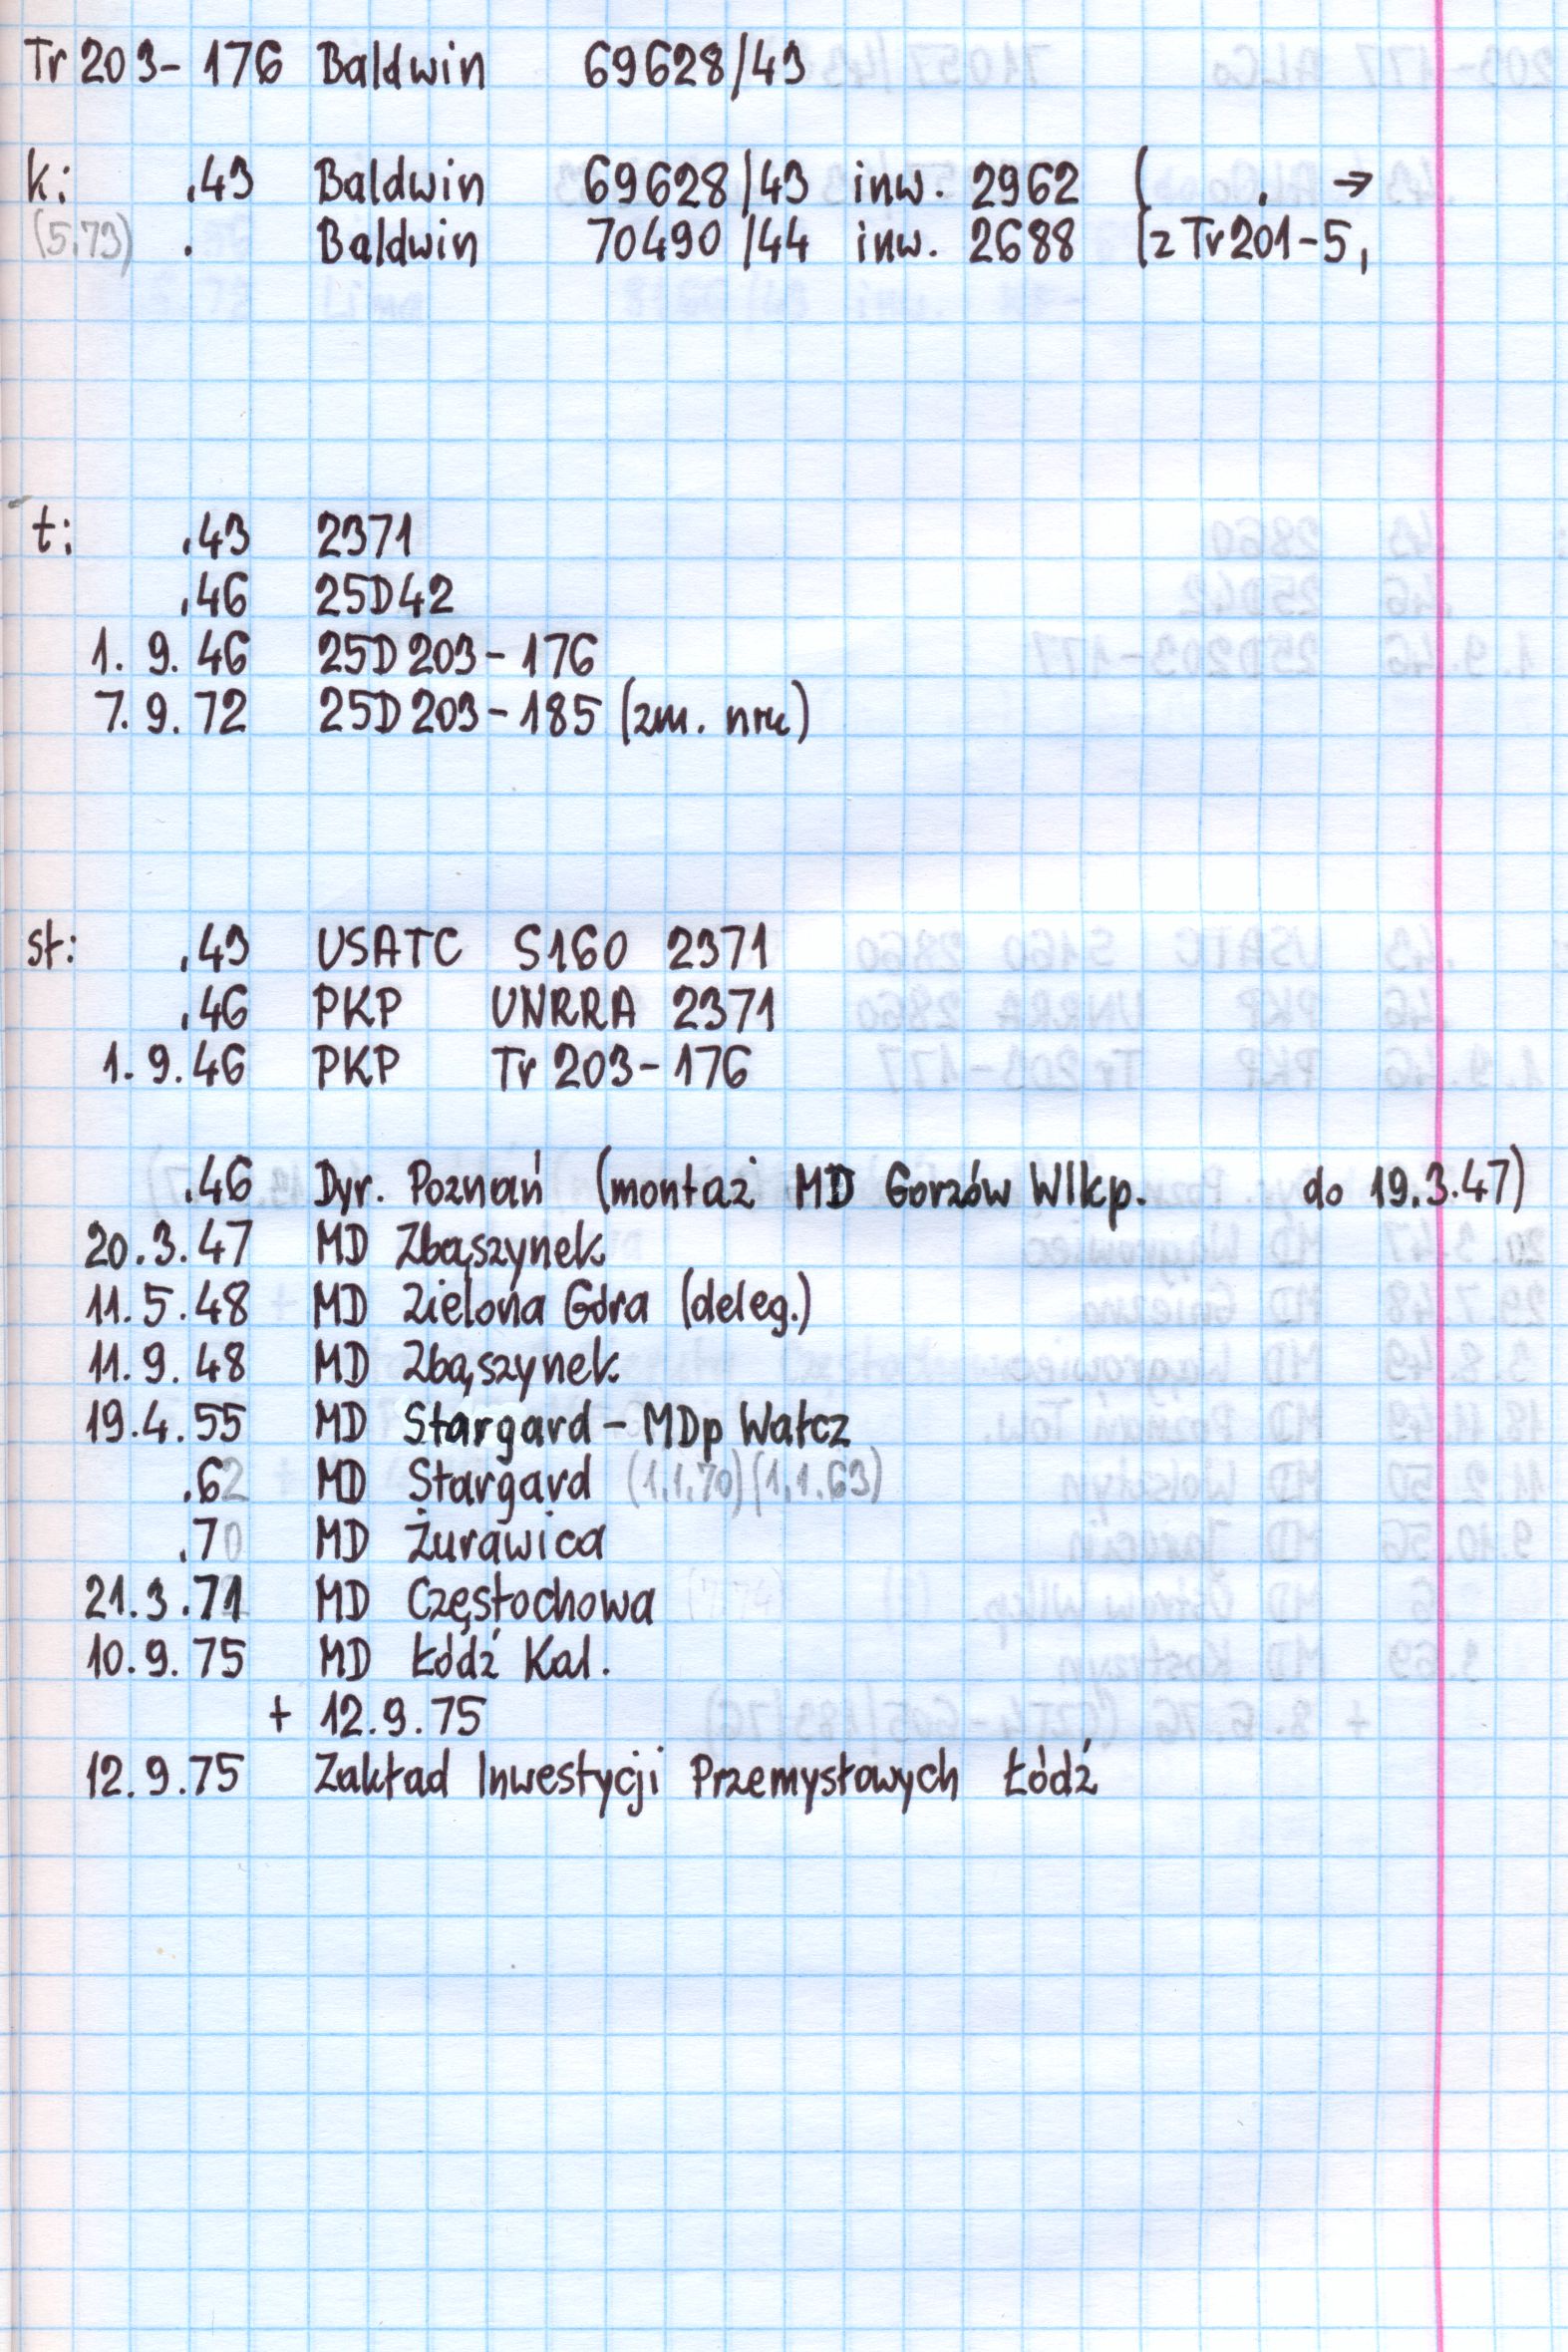 Tr 203-176 Baldwin 69628/43
k: .43 Baldwin 69628/43 inw. 2962 ( . →
(5.73) . Baldwin 70490/44 inw. 2688 (z Tr 201-5,
t: .43 2371
.46 25D42
1.9.46 25D203-176
7.9.72 25D203-185 (zm. nru)
sł: .43 USATC S160 2371
.46 PKP UNRRA 2371
1.9.46 PKP Tr 203-176
.46 Dyr. Poznań (montaż MD Gorzów Wlkp. do 19.3.47)
20.3.47 MD Zbąszynek
11.5.48 MD Zielona Góra (deleg.)
11.9.48 MD Zbąszynek
19.4.55 MD Stargard - MDp Wałcz
.62 MD Stargard (1.1.70)(1.1.63)
.70 MD Żurawica
21.3.71 MD Częstochowa
10.9.75 MD Łódź Kal.
+ 12.9.75
12.9.75 Zakład Inwestycji Przemysłowych Łódź